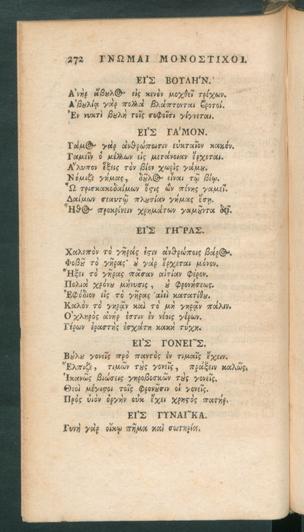 272 ΓΝΩΜΑΙ ΜΟΝΟΣΤΙΧΟΙ.
ΕΙ'Σ ΒΟΥΛΗ'Ν.
Ἀνὴρ ἄβουλος εἰς κενὸν μοχθεῖ τρέχων.
Ἀβουλίᾳ γὰρ πολλὰ βλάπτονται βροτοί.
Ἐν νυκτὶ βουλὴ τοῖς σοφοῖσι γίγνεται.
ΕΙ'Σ ΓΑ'ΜΟΝ.
Γάμος γὰρ ἀνθρώποισιν εὐκταῖον κακόν.
Γαμεῖν ὁ μέλλων εἰς μετάνοιαν ἔρχεται.
Ἄλυπον ἕξεις τὸν βίον χωρὶς γάμου.
Νόμιζε γήμας, δοῦλος εἶναι τῷ βίῳ.
Ὢ τρισκακοδαίμων ὅστις ὢν πένης γαμεῖ.
Δαίμων σεαυτῷ πλουσίαν γήμας ἔσῃ.
Ἦθος προκρίνειν χρημάτων γαμοῦντα δεῖ.
ΕΙ'Σ ΓΗ͂ΡΑΣ.
Χαλεπὸν τὸ γῆράς ἐστιν ἀνθρώποις βάρος.
Φοβοῦ τὸ γῆρας· οὐ γὰρ ἔρχεται μόνον.
Ἥξει τὸ γῆρας πᾶσαν αἰτίαν φέρον.
Πολιὰ χρόνου μήνυσις, οὐ φρονήσεως.
Ἐφόδιον εἰς τὸ γῆρας αἰεὶ κατατίθου.
Καλὸν τὸ γηρᾷν καὶ τὸ μὴ γηρᾷν πάλιν.
Ὀχληρὸς ἀνὴρ ἐστὶν ἐν νέοις γέρων.
Γέρων ἐραστὴς ἐσχάτη κακὴ τύχη.
ΕΙ'Σ ΓΟΝΕΙ͂Σ.
Βούλου γονεῖς πρὸ παντὸς ἐν τιμαῖς ἔχειν.
Ἔλπιζε, τιμῶν τοὺς γονεῖς, πράξειν καλῶς.
Ἱκανῶς βιώσεις γηροβοσκῶν τοὺς γονεῖς.
Θεοὶ μέγιστοι τοῖς φρονοῦσιν οἱ γονεῖς.
Πρὸς υἱὸν ὀργὴν οὐκ ἔχει χρηστὸς πατήρ.
ΕΙ'Σ ΓΥΝΑΙ͂ΚΑ.
Γυνὴ γὰρ οἴκῳ πῆμα καὶ σωτηρία.